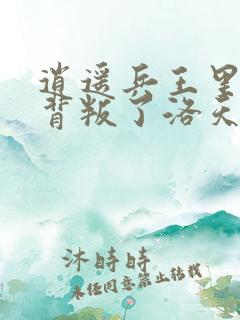 逍遥兵王里
背叛了洛天
沐時時
未任同意禁止转载